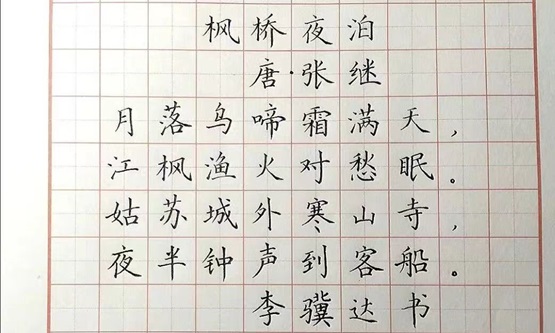 枫桥夜泊
唐·张继
月落乌啼霜满天，
江枫渔火对愁眠。
姑苏城外寒山寺，
夜半钟声到客船。
李骥达书